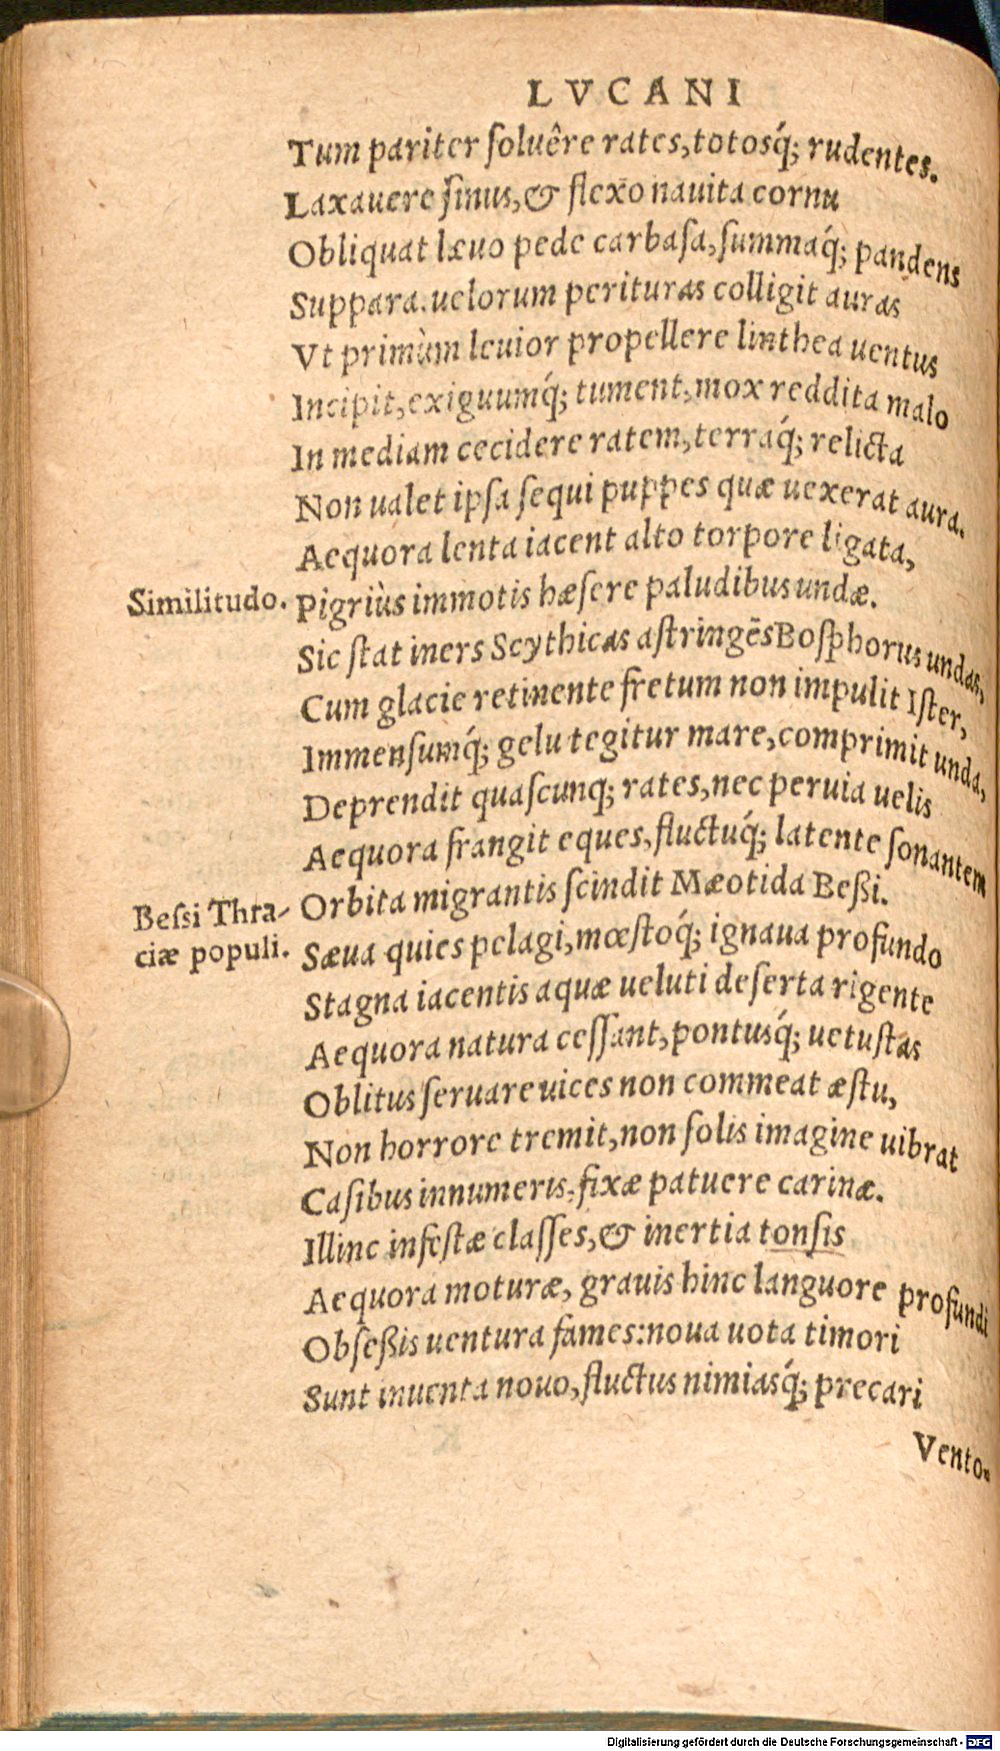 LVCANI
Tum pariter ſoluêre rates, totosq́; rudentes.
Laxauere ſinus, & flexo nauita cornu
Obliquat læuo pede carbaſa, ſummaq́; pandens
Suppara. uelorum perituras colligit auras
Vt primùm leuior propellere linthea uentus
Incipit, exiguumq́; tument, mox reddita malo
In mediam cecidere ratem, terraq́; relicta
Non ualet ipſa ſequi puppes quæ uexerat aura.
Aequora lenta iacent alto torpore ligata,
Similitudo. Pigriùs immotis hæſere paludibus undæ.
Sic ſtat iners Scythicas aſtringẽs Boſphorus undas,
Cum glacie retinente fretum non impulit Iſter,
Immenſumq́; gelu tegitur mare, comprimit unda,
Deprendit quaſcunq; rates, nec peruia uelis
Aequora frangit eques, fluctuq́; latente ſonantem
Beſsi Thra- Orbita migrantis ſcindit Mæotida Beßi.
ciæ populi. Sæua quies pelagi, mœſtoq́; ignaua profundo
Stagna iacentis aquæ ueluti deſerta rigente
Aequora natura ceſſant, pontusq́; uetuſtas
Oblitus ſeruare uices non commeat æſtu,
Non horrore tremit, non ſolis imagine uibrat
Caſibus innumeris, fixæ patuere carinæ.
Illinc infeſtæ claſſes, & inertia tonſis
Aequora moturæ, grauis hinc languore profundi
Obſeßis uentura fames: noua uota timori
Sunt inuenta nouo, fluctus nimiasq́; precari
Vento-
Digitalisierung gefördert durch die Deutsche Forschungsgemeinschaft - DFG